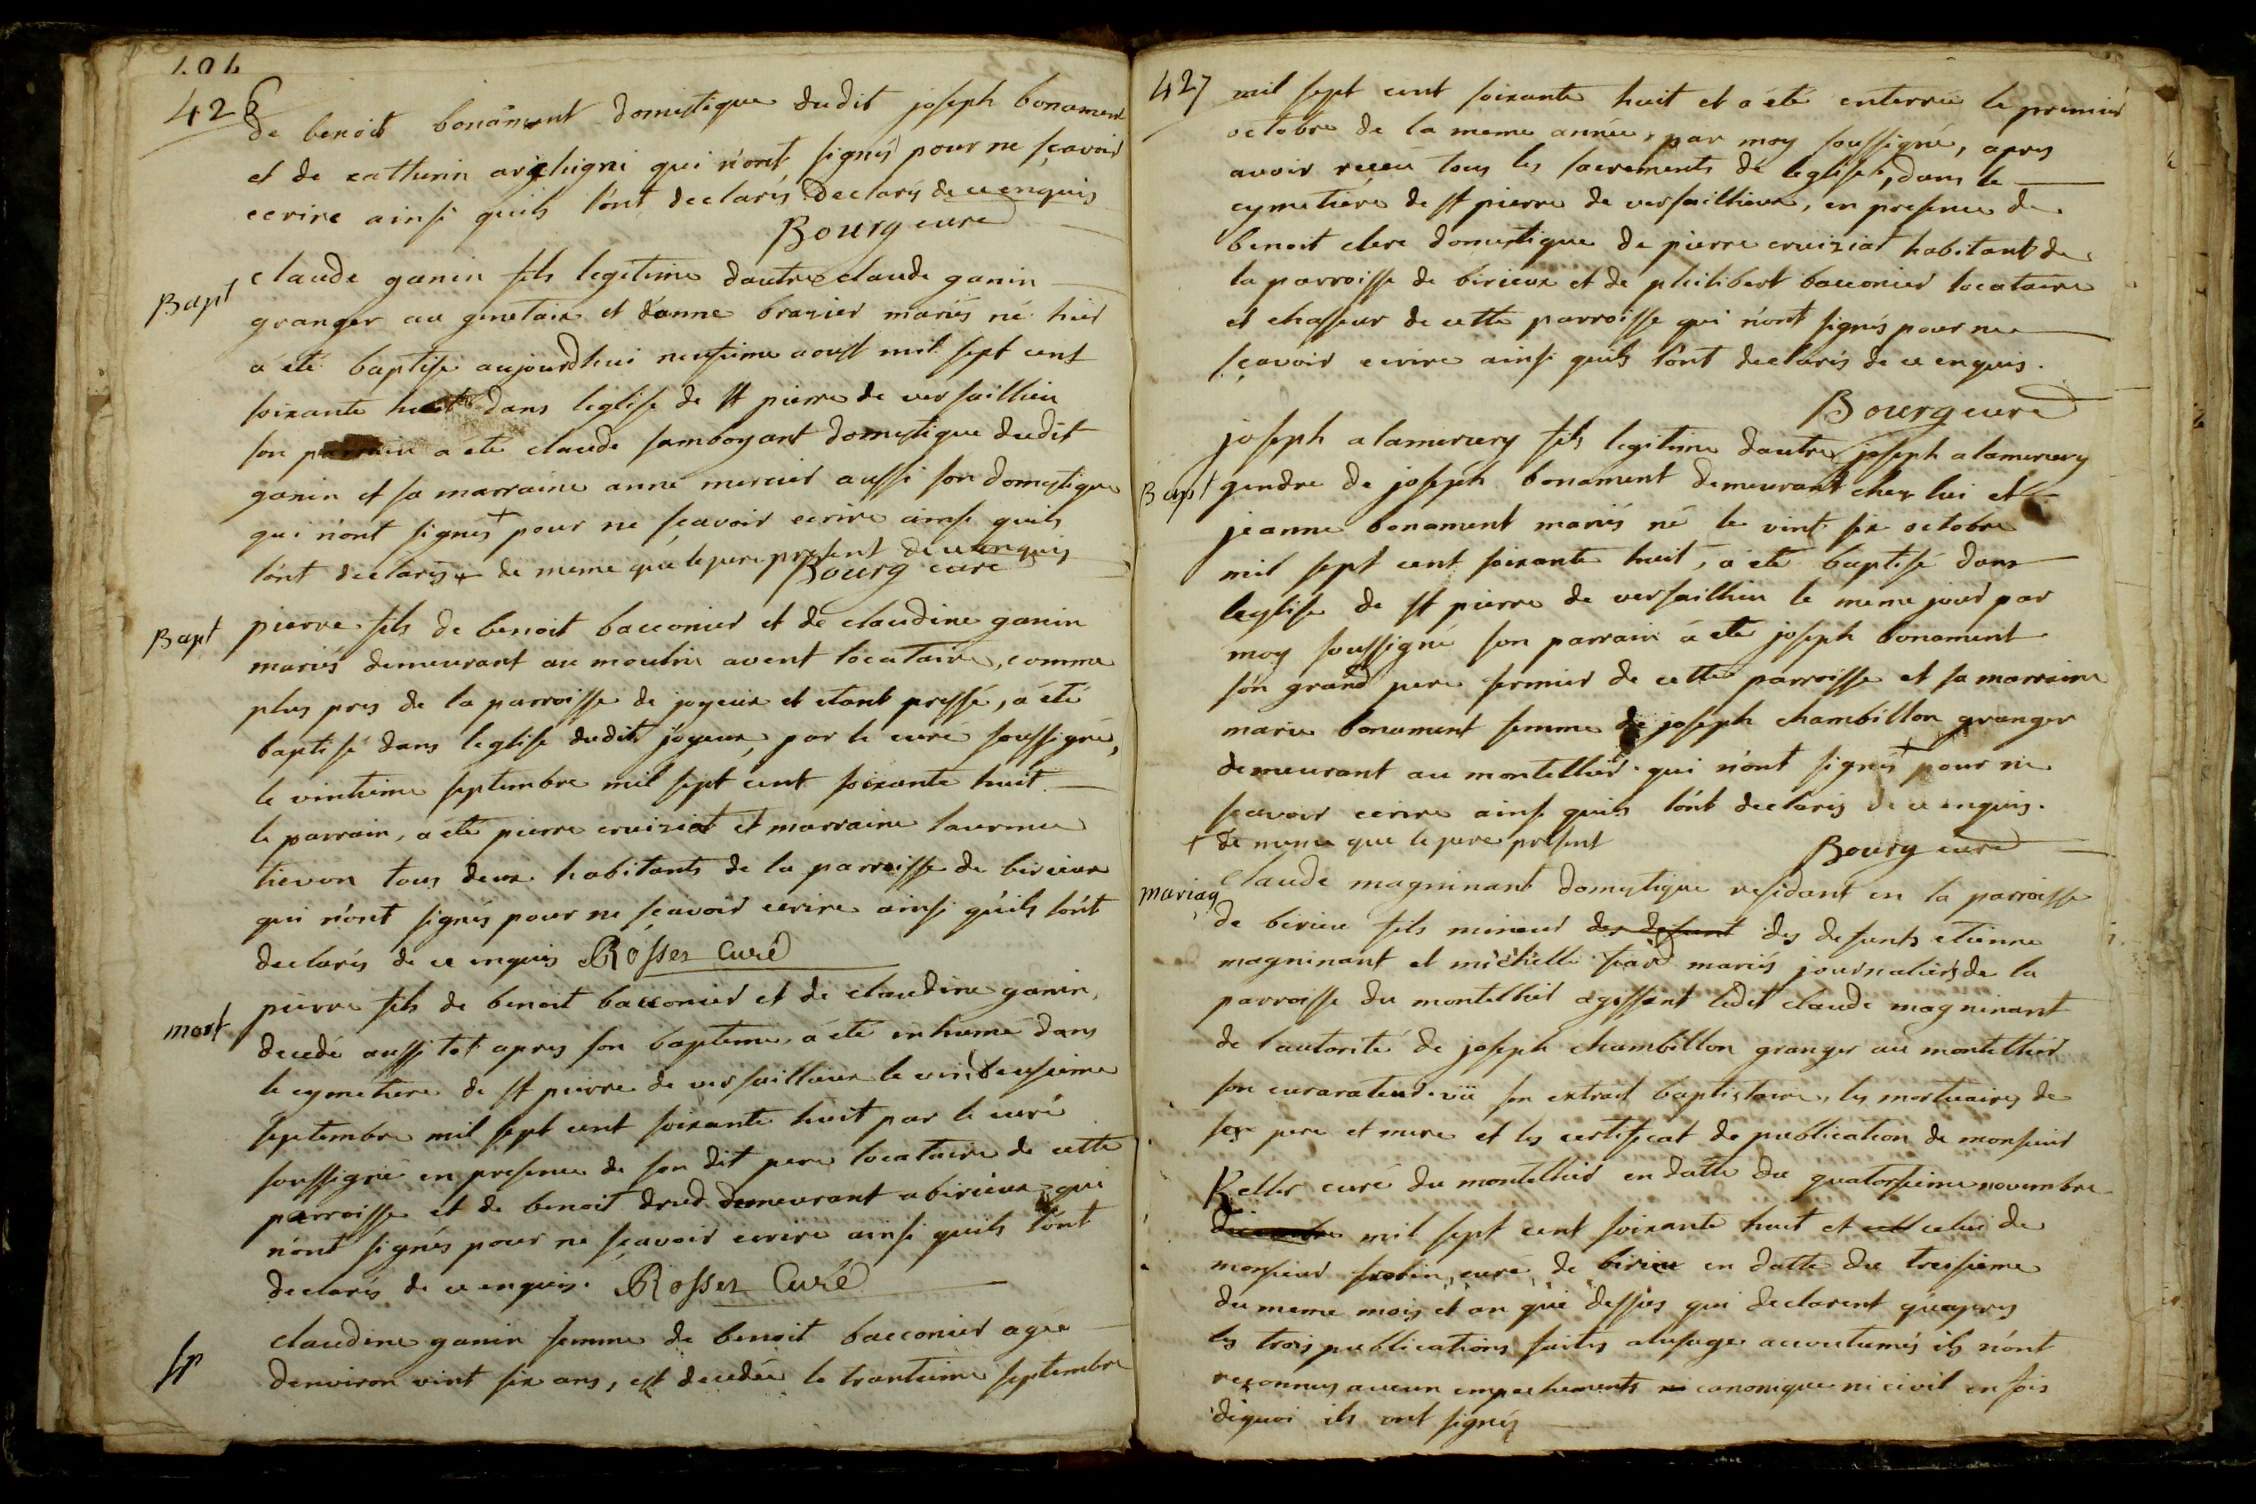 426
de benoit bonament domestique dudit joseph bonament
et de catherin archigni qui n'ont signés pour ne sçavoir
ecrire ainsi quils l'ont declarés declarés de ce enquis
Bourg curé
Bapt
claude ganin fils legitime dautre claude ganin
granger au genetaix et d'anne brazier mariés né hier
a eté baptisé aujourdhui neufieme aoust mil sept cent
soixante huit dans leglise de st pierre de versaillieu
son parrain a eté claude samboyart domestique dudit
ganin et sa marraine anne mercier aussi son domestique
qui n'ont signés + pour ne sçavoir ecrire ainsi quils
l'ont declarés + de meme que le pere present de ce enquis
Bourg curé
Bapt
pierre fils de benoit bacconier et de claudine ganin
mariés demeurant au moulin avent locataire, comme
plus pres de la parroisse de joyeux et etant pressé, a eté
baptisé dans leglise dudit joyeux, par le curé soussigné,
le vintieme septembre mil sept cent soixante huit
le parrain, a eté pierre cruiziat et marraine laurence
tievon tous deux habitants de la parroisse de birieux
qui n'ont signés pour ne sçavoir ecrire ainsi qu'ils l'ont
declarés de ce enquis Rosser Curé
mort
pierre fils de benoit bacconier et de claudine ganin,
decedé aussi tot apres son bapteme, a eté enhumé dans
le cymetiere de st pierre de versaillieux le vint deusieme
septembre mil sept cent soixante huit par le curé
soussigné en presence de son dit pere locataire de cette
parroisse et de benoit drud demeurant a birieux qui
n'ont signés pour ne sçavoir ecrire ainsi quils l'ont
declarés de ce enquis. Rosser Curé
Sp
claudine ganin femme de benoit bacconier agée
denviron vint six ans, est decedée le trantieme septembre
427
mil sept cent soixante huit et a eté enterrée le premier
octobre de la meme année, par moy soussigné, apres
avoir receu tous les sacrements de leglise, dans le
cymetiére de st pierre de versaillieux, en presence de
benoit clerc domestique de pierre cruiziat habitant de
la parroisse de birieux et de philibert bacconier locataire
et chasseur de cette parroisse qui n'ont signés pour ne
sçavoir ecrire ainsi quils l'ont declarés de ce enquis.
Bourg curé
Bapt
joseph alamercery fils legitime dautre joseph alamercery
gendre de joseph bonament demeurant chez lui et
jeanne bonament mariés né le vint six octobre
mil sept cent soixante huit, a eté baptisé dans
leglise de st pierre de versaillieu le meme jour par
moy soussigné son parrain a eté joseph bonament
son grand pere fermier de cette parroisse et sa marraine
marie bonament femme de joseph chambillon granger
demeurant au montellier. qui n'ont signés + pour ne
sçavoir ecrire ainsi quils l'ont declarés de ce enquis.
+ de meme que le pere présent
Bourg curé
mariag
claude magninant domestique residant en la parroisse
de birieu fils mineur des defunt des defunts etienne
magninant et michelle fiard mariés journaliers de la
parroisse du montellier agissant ledit claude magninant
de l'autorité de joseph chambillon granger au montellier
son curarateur. vü son extrait baptistaire, les mortuaires de
ses pere et mere et les certificat de publication de monsieur
Reller curé du montellier en datte du quatorsieme novembre
mil sept cent soixante huit et cell celui de
monsieur frobin, curé, de birieu en datte du treisieme
du meme mois et an que dessus qui declarent qu'apres
les trois publications faites alusage accoutumés ils n'ont
reconnus aucun empechements ni canonique ni civil en fois
dequoi ils ont signés